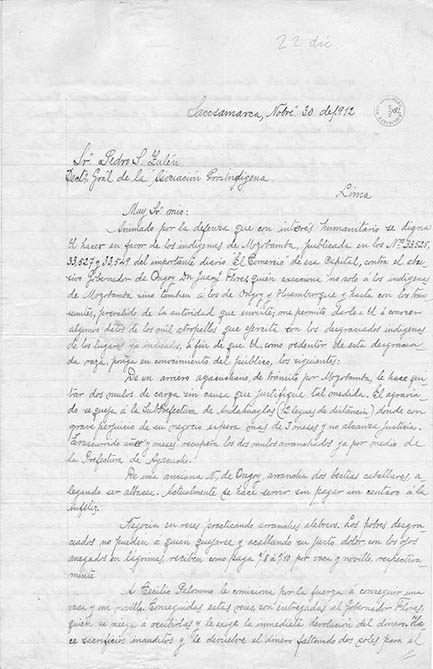 22 dic
Saccsamarca, Novbre 30 de 1912
Sr. Pedro S. Zulen
Secto. Gral de la Asociación Pro-Indígena.
Lima
Muy Sr. mio:
Animado por la defenza que con interés humanitario se digna
U. hacer en favor de los indígenas de Mozobamba, publicada en los Nos. 33,525,
33,527 y 33,549 del importante diario "El Comercio" de esa Capital, contra el abu-
sivo Gobernador de Ongoy Dn. Juan Flores, quien exacciona no solo á los indígenas
de Mozobamba sino tambien á los de Ongoy y y hasta con los tran-
seuntes, prevalido de la autoridad que inviste; me permito darle á U. á conocer
algunos datos de los mil atropellos que ejercita con los desgraciados indígenas
de los lugares ya indicados, á fin de que U. como redentor de esta desgracia-
da raza, ponga en conocimiento del público, los siguientes:
De un arriero ayacuchano, de tránsito por Mozobamba, le hace qui-
tar dos mulos de carga sin causa que justifique tal medida. El agravia-
do se queja á la SubPrefectura de Andahuaylas (12 leguas de distancia) donde con
grave perjuicio de su negocio espera mas de 3 meses y no alcanza justicia.
Trascurrido año y meses recupera los dos mulos arranchados ya por medio de
la Prefectura de Ayacucho.
De una anciana N., de Ongoy, arrancha dos bestias caballares, a-
legando ser albacea. Actualmente se hace servir sin pagar un centavo á la
infeliz.
Negocia en reses practicando arranches aleves. Los pobres desgra-
ciados no pueden á quien quejarse y acallando su justo dolor con los ojos
anegados en lágrimas, reciben como paga S/8 á S/10 por vaca y novillo, respectiva-
mente
A Cecilio Palomino le comisiona por la fuerza á conseguir una
vaca y un novillo. Conseguidas estas reses, son entregadas al Gobernador Flores,
quien se niega á recibirlas y le exige la inmediata devolución del dinero. Ha-
ce sacrificios inauditos y le devuelve el dinero faltando dos soles para el